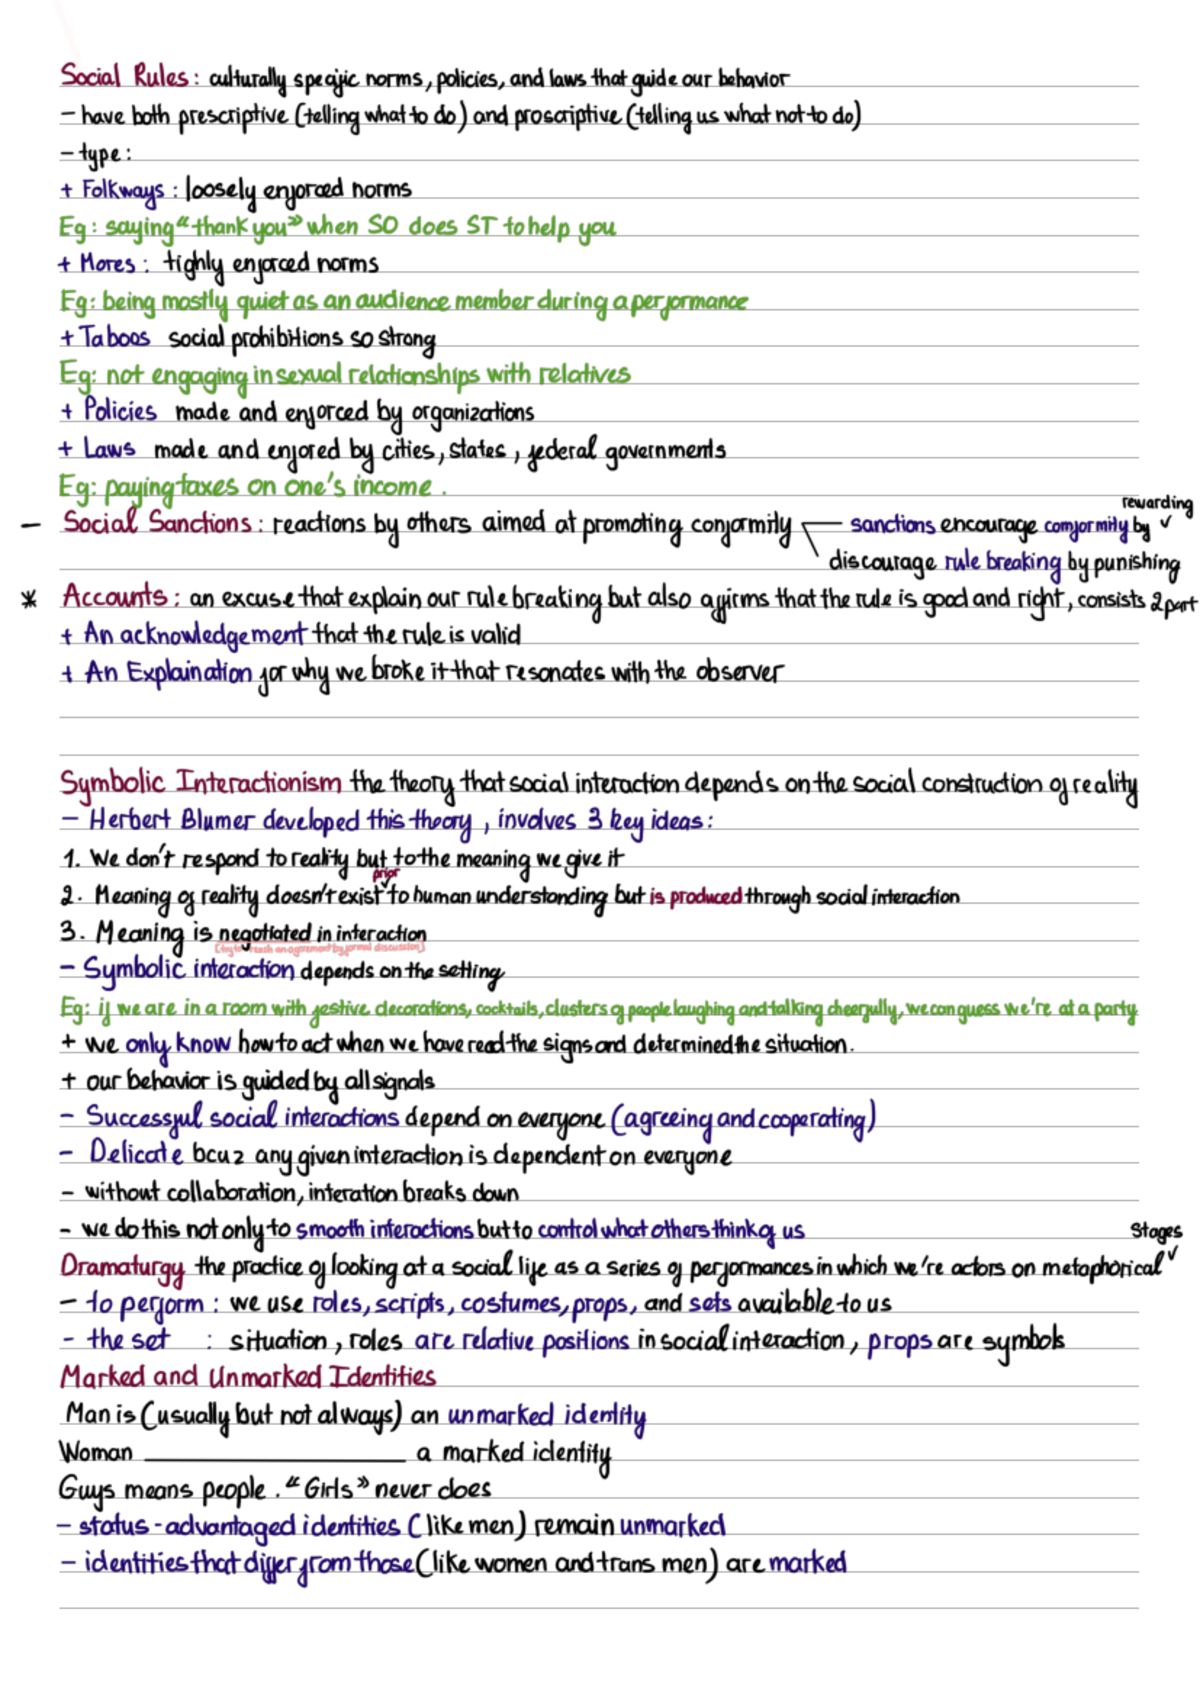 Social Rules: culturally specific norms, policies, and laws that guide our behavior
- have both prescriptive (telling what to do) and proscriptive (telling us what not to do)
- type:
+ Folkways: loosely enforced norms
Eg: saying "thank you" when SO does ST to help you
+ Mores: tighly enforced norms
Eg: being mostly quiet as an audience member during a performance
+ Taboos social prohibitions so strong
Eg: not engaging in sexual relationships with relatives
+ Policies made and enforced by organizations
+ Laws made and enfored by cities, states, federal governments
Eg: paying taxes on one's income.
- Social Sanctions: reactions by others aimed at promoting conformity sanctions encourage comformity by rewarding
discourage rule breaking by punishing
* Accounts: an excuse that explain our rule breaking but also affirms that the rule is good and right, consists 2 part
+ An acknowledgement that the rule is valid
+ An Explaination for why we broke it that resonates with the observer
Symbolic Interactionism the theory that social interaction depends on the social construction of reality
- Herbert Blumer developed this theory, involves 3 key ideas:
1. We don't respond to reality but to the meaning we give it
2. Meaning of reality doesn't exist prior to human understanding but is produced through social interaction
3. Meaning is negotiated in interaction
(try to reach an agreement by formal discussion)
- Symbolic interaction depends on the setting
Eg: if we are in a room with festive decorations, cocktails, clusters of people laughing and talking cheerfully, we can guess we're at a party
+ we only know how to act when we have read the signs and determined the situation.
+ our behavior is guided by all signals
- Successful social interactions depend on everyone (agreeing and cooperating)
- Delicate bcuz any given interaction is dependent on everyone
- without collaboration, interation breaks down
- we do this not only to smooth interactions but to control what others think of us
Dramaturgy the practice of looking at a social life as a series of performances in which we're actors on metaphorical stages
- to perform: we use roles, scripts, costumes, props, and sets available to us
- the set : situation, roles are relative positions in social interaction, props are symbols
Marked and Unmarked Identities
Man is (usually but not always) an unmarked identity
Woman ____ a marked identity
Guys means people. "Girls" never does
- status-advantaged identities (like men) remain unmarked
- identities that differ from those (like women and trans men) are marked